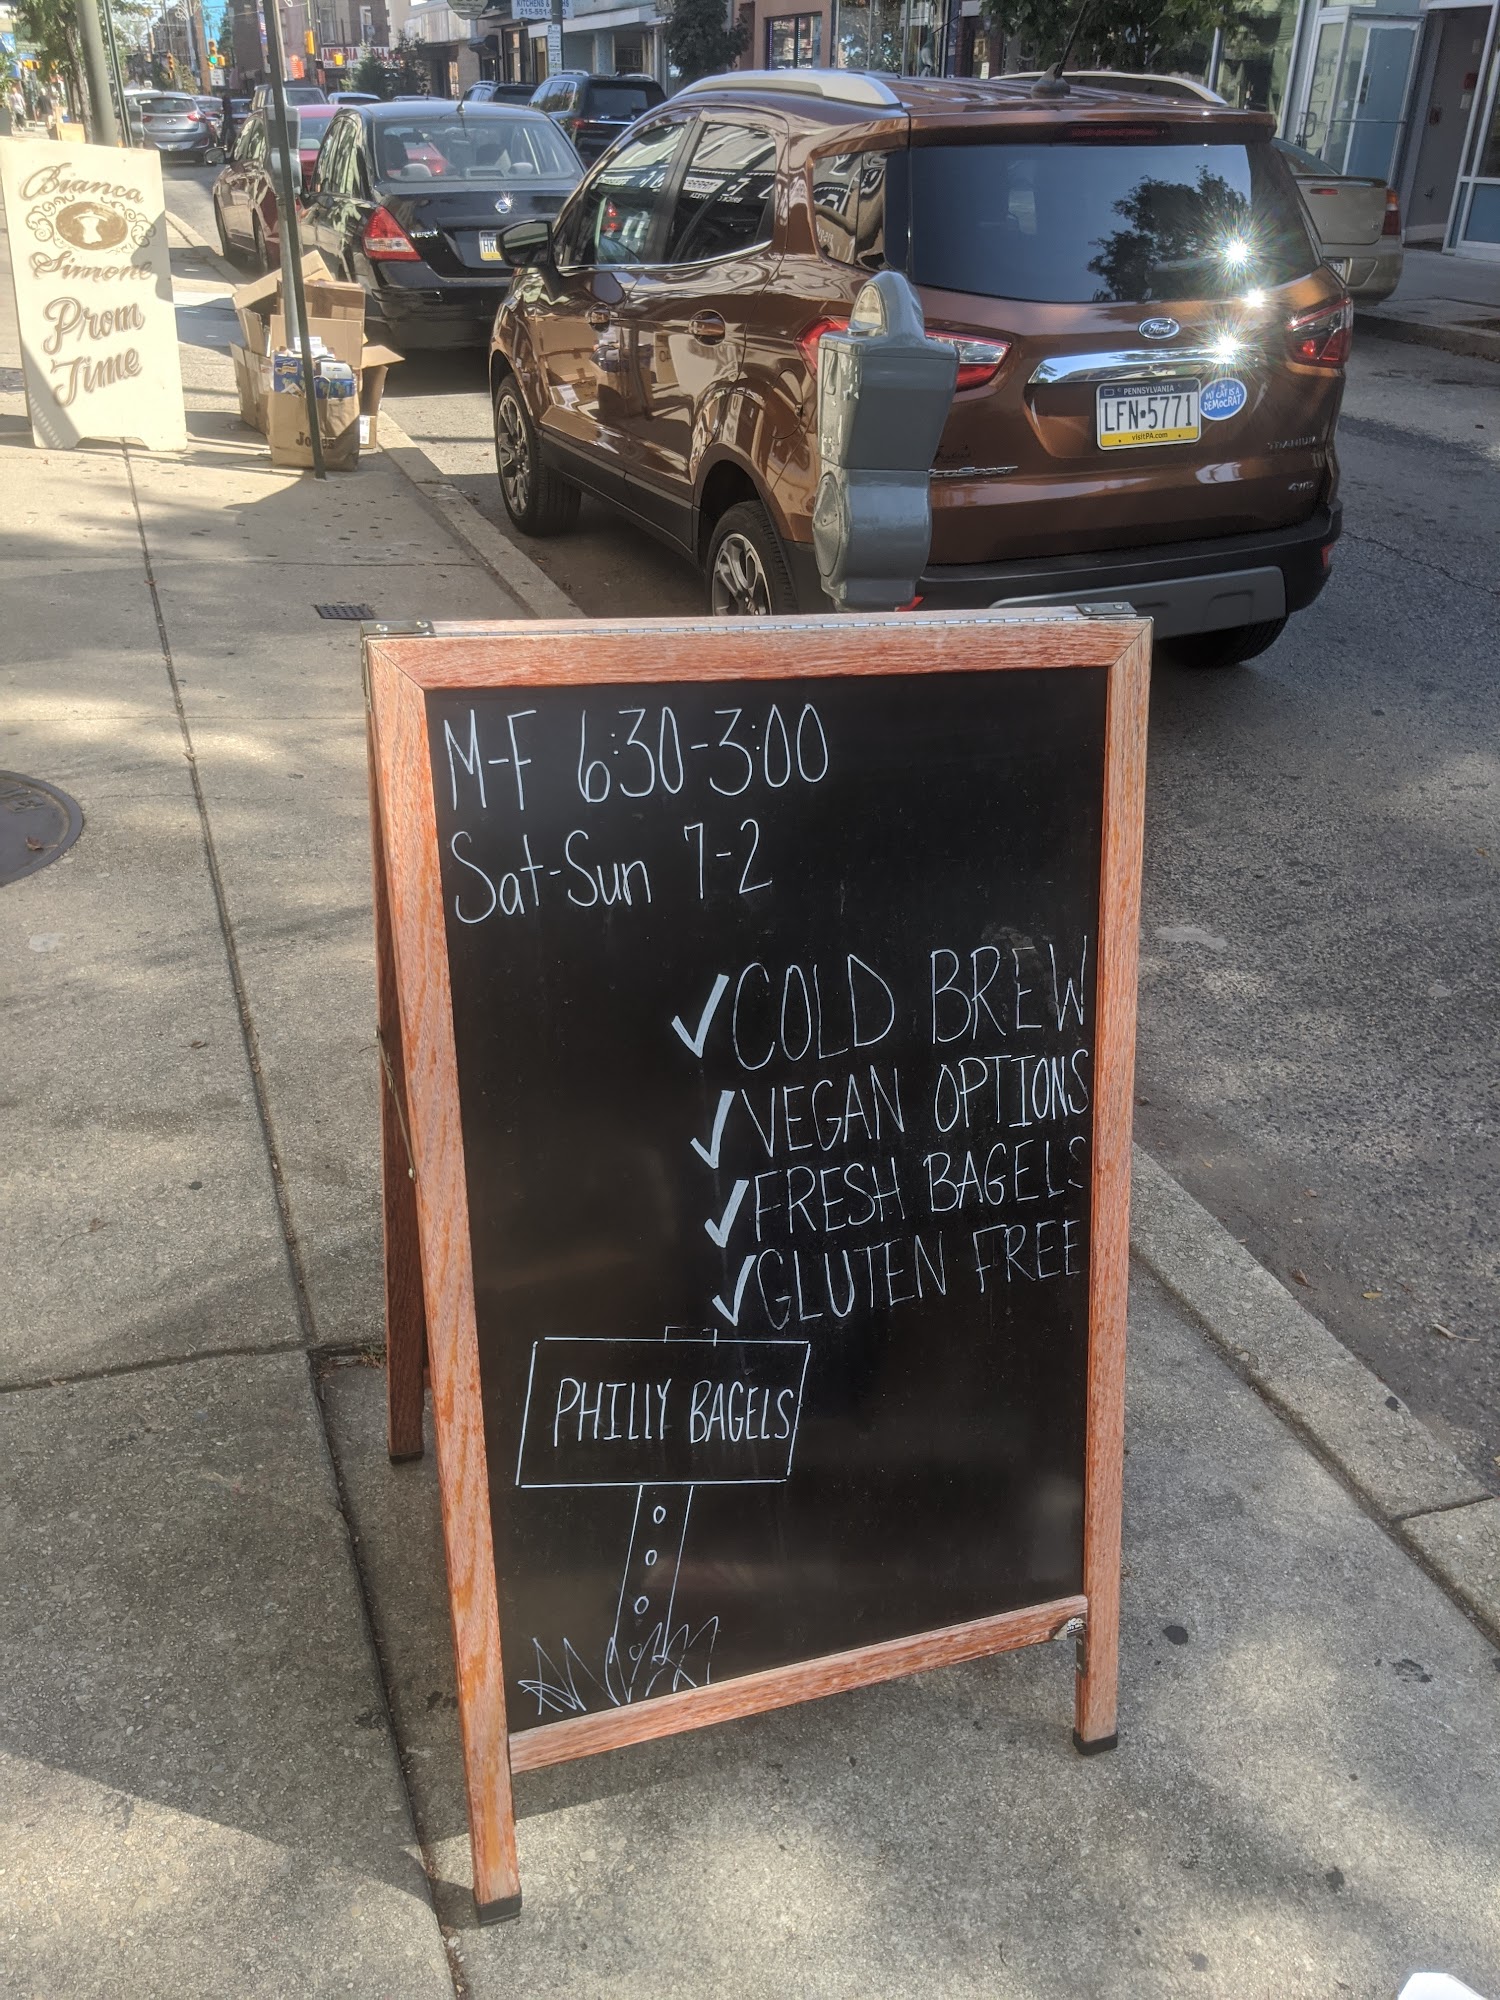 KITCHENS &
Bianca
Simone
Prom
Time
Ford
PENNSYLVANIA
LFN•5771
visitPA.com
MY CAT IS A
DEMOCRAT
ECOSPORT
TITANIUM
4WD
M-F 6:30-3:00
Sat-Sun 7-2
✓COLD BREW
✓VEGAN OPTIONS
✓FRESH BAGELS
✓GLUTEN FREE
PHILLY BAGELS